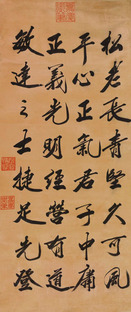 松老長青堅久可風
平心正氣君子中庸
正義光明經營有道
敏達之士捷足先登